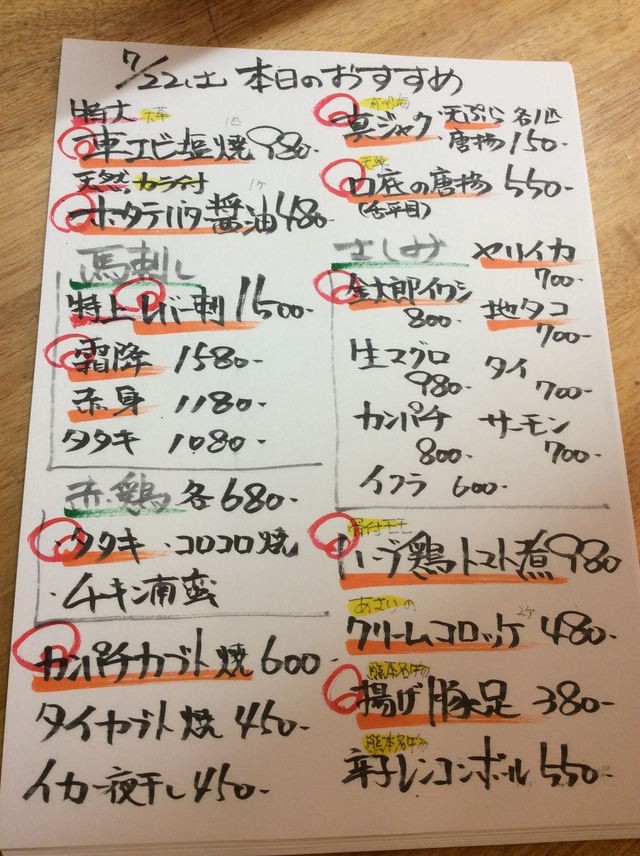 7/22(土) 本日のおすすめ
特大 天草
車エビ塩焼 980- 1匹
天然 カラ付
ホタテバター醤油 480- 1ケ
馬刺し
特上レバー刺 1500-
霜降 1580-
赤身 1180-
タタキ 1080-
赤鶏 各680-
・タタキ ・コロコロ焼
・チキン南蛮
カンパチカブト焼 600-
タイカブト焼 450-
イカ一夜干し 450-
有明海
真ジャク 天ぷら 各1匹
唐揚 150-
天草
口底の唐揚 550-
(舌平目)
さしみ
ヤリイカ
700-
金太郎イワシ
800-
地タコ
700-
生マグロ
980-
タイ
700-
カンパチ
800-
サーモン
700-
イクラ 600-
骨付モモ
ハーブ鶏トマト煮 980
クリームコロッケ 480- 2ケ
熊本名物
揚げ豚足 380-
熊本名物
辛子レンコンボール 550-